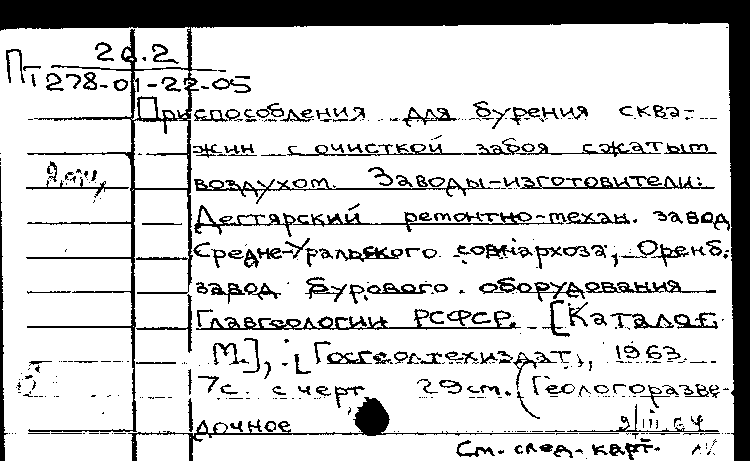 Пт 26.2
278-01-22-05
Приспособления для бурения сква-
жин с очисткой забоя сжатым
воздухом. Заводы-изготовители:
Дегтярский ремонтно-механ. завод
Средне-Уральского совнархоза, Оренб.
завод бурового оборудования
Главгеологии РСФСР. [Каталог.
М.], [Госгеолтехиздат], 1963.
7с. с черт. 29см. (Геологоразве-
дочное
9/III 64
См. след. карт.